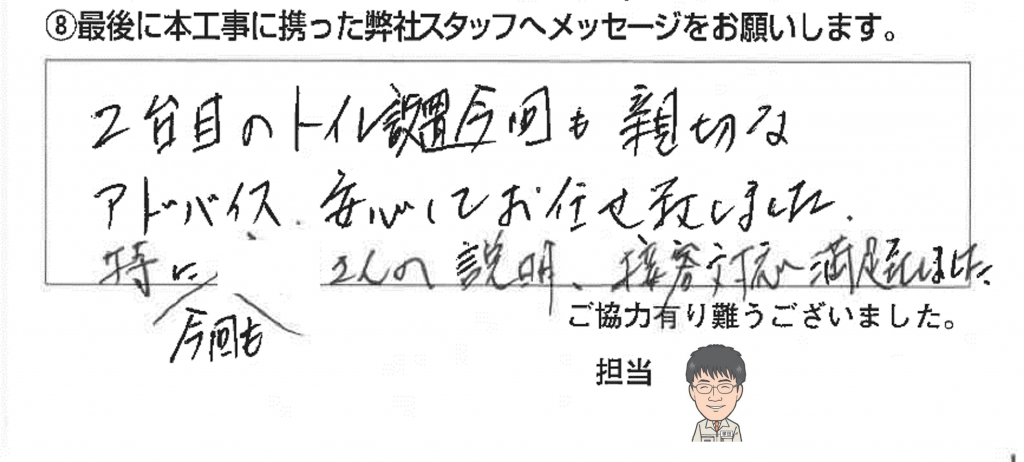 ⑧最後に本工事に携った弊社スタッフへメッセージをお願いします。
2台目のトイレ設置今回も親切な
アドバイス、安心してお任せ致しました。
特に さんの説明、接客対応に満足致しました。
今回も
ご協力有り難うございました。
担当